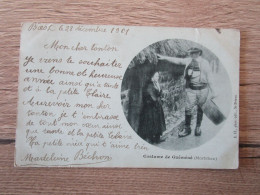 le 28 décembre 1901
Mon cher tonton
je viens te souhaiter
une bonne et heureuse
année ainsi qu'a tata
et à la petite Claire
Aurevoir mon cher
tonton, je t'embrasse
de tout mon cœur ainsi
que tante et la petite
ta petite nièce qui t'aime bien
Madeleine
Costume de Guéméné (Morbihan)